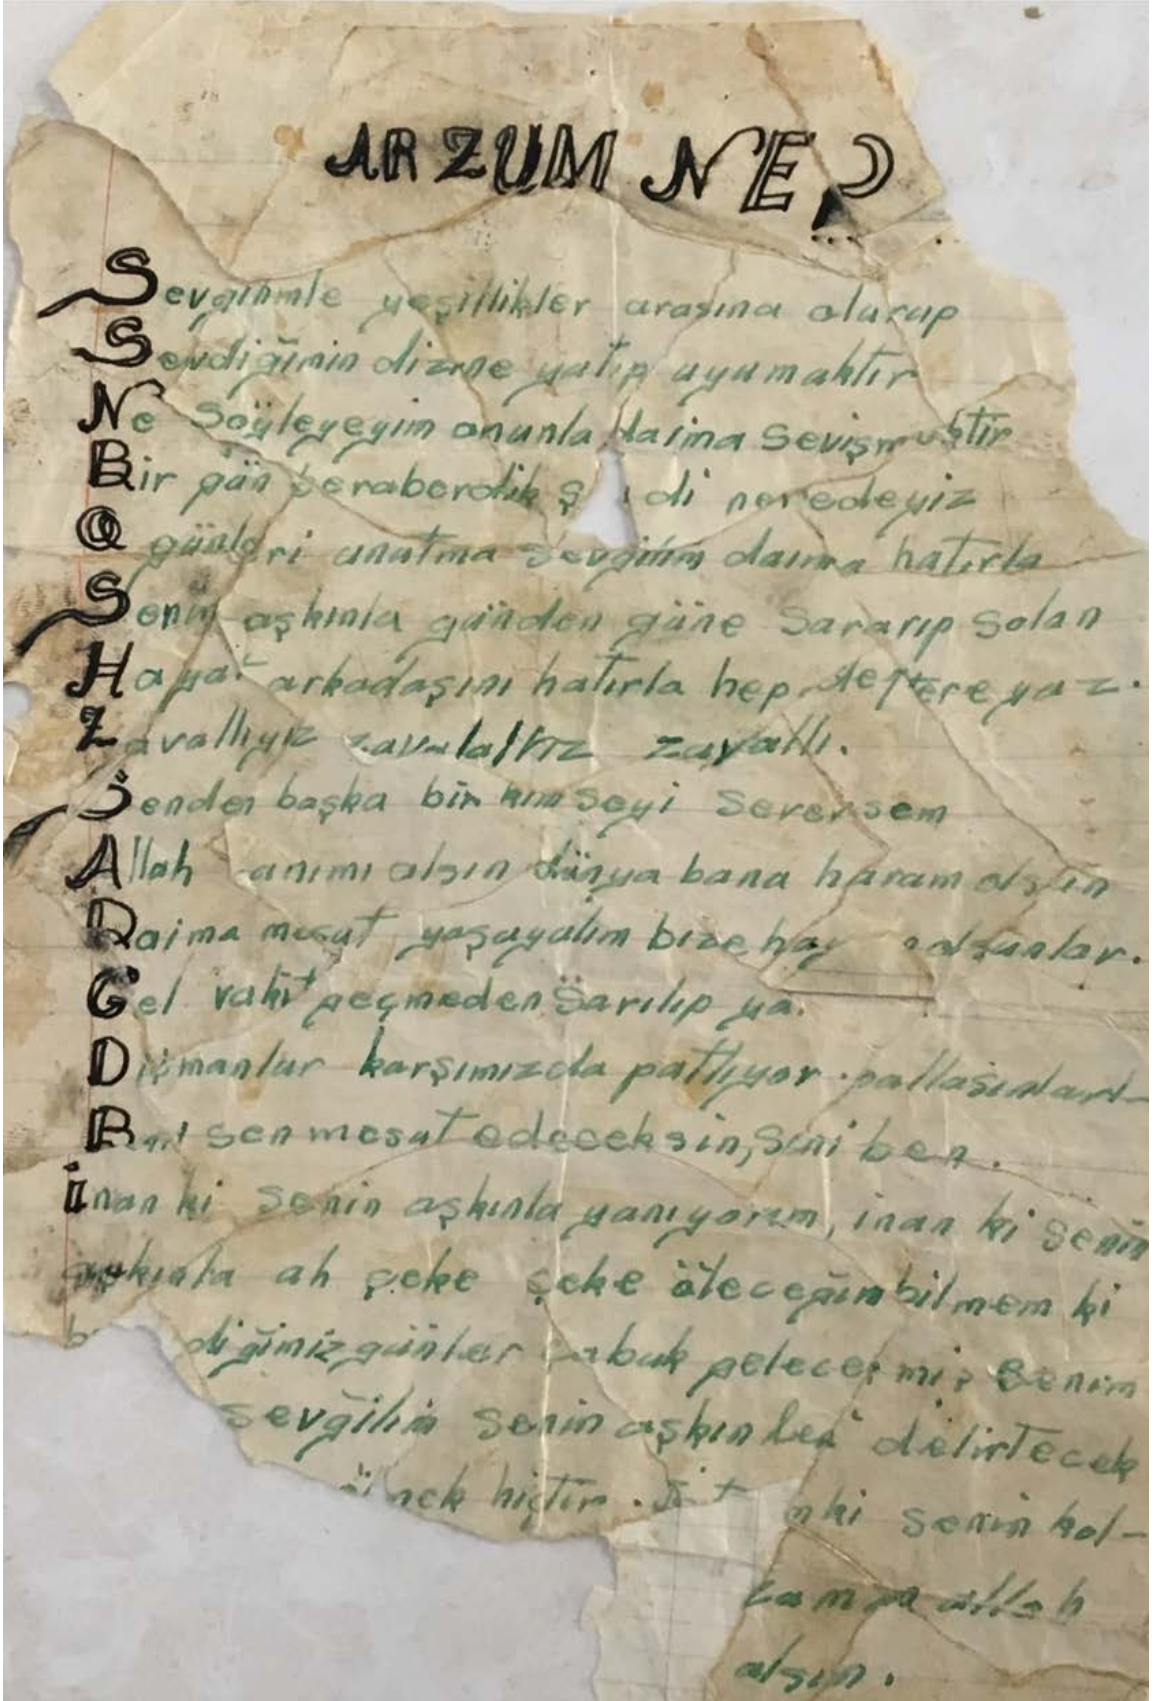 ARZUM NE?
Sevgilimle yeşillikler arasına oturup
Sevdiğimin dizine yatıp uyumaktır
Ne söyleyeyim onunla daima sevişmektir
Bir gün beraberdik ş di neredeyiz
O günleri unutma sevgilim daima hatırla
Senin aşkınla günden güne sararıp solan
Hayat arkadaşını hatırla hep deftere yaz.
Zavallıyız zavalalıız zavallı.
Senden başka bir kimseyi seversem
Allah anımı alsın dünya bana haram olsun
Daima mesut yaşayalım bize hay olsunlar.
Gel vakit geçmeden sarılıp ya
Düşmanlar karşımızda patlıyor patlasınlar
Beni sen mesut edeceksin, seni ben.
inan ki senin aşkınla yanıyorum, inan ki senin
aşkınla ah çeke çeke öleceğim bilmem ki
b diğimiz günler abuk gelecek mi? Benim
sevğilim senin aşkın beni delirtecek
nek hiçtir. nki senin kol-
zaman allah
alsın.